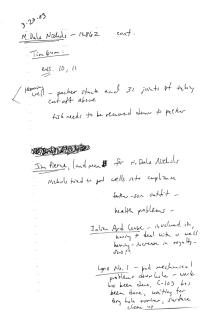 3-28-03
M. Dale Nichols - 12862 cont.
Tim Gum:
Res. 10, 11
well - packer stuck and 31 joints of tubing
cut off above
fish needs to be removed down to packer
Jim Pierce, landman for M. Dale Nichols
Nichols tried to put wells into compliance
health problems -
Julian Ard Lease - involved in,
having to deal with
having increase in royalty -
No. 1 - put mechanical
problems down hole - work
has been done, C-103 has
been done, waiting for
dry hole marker, surface
clean up